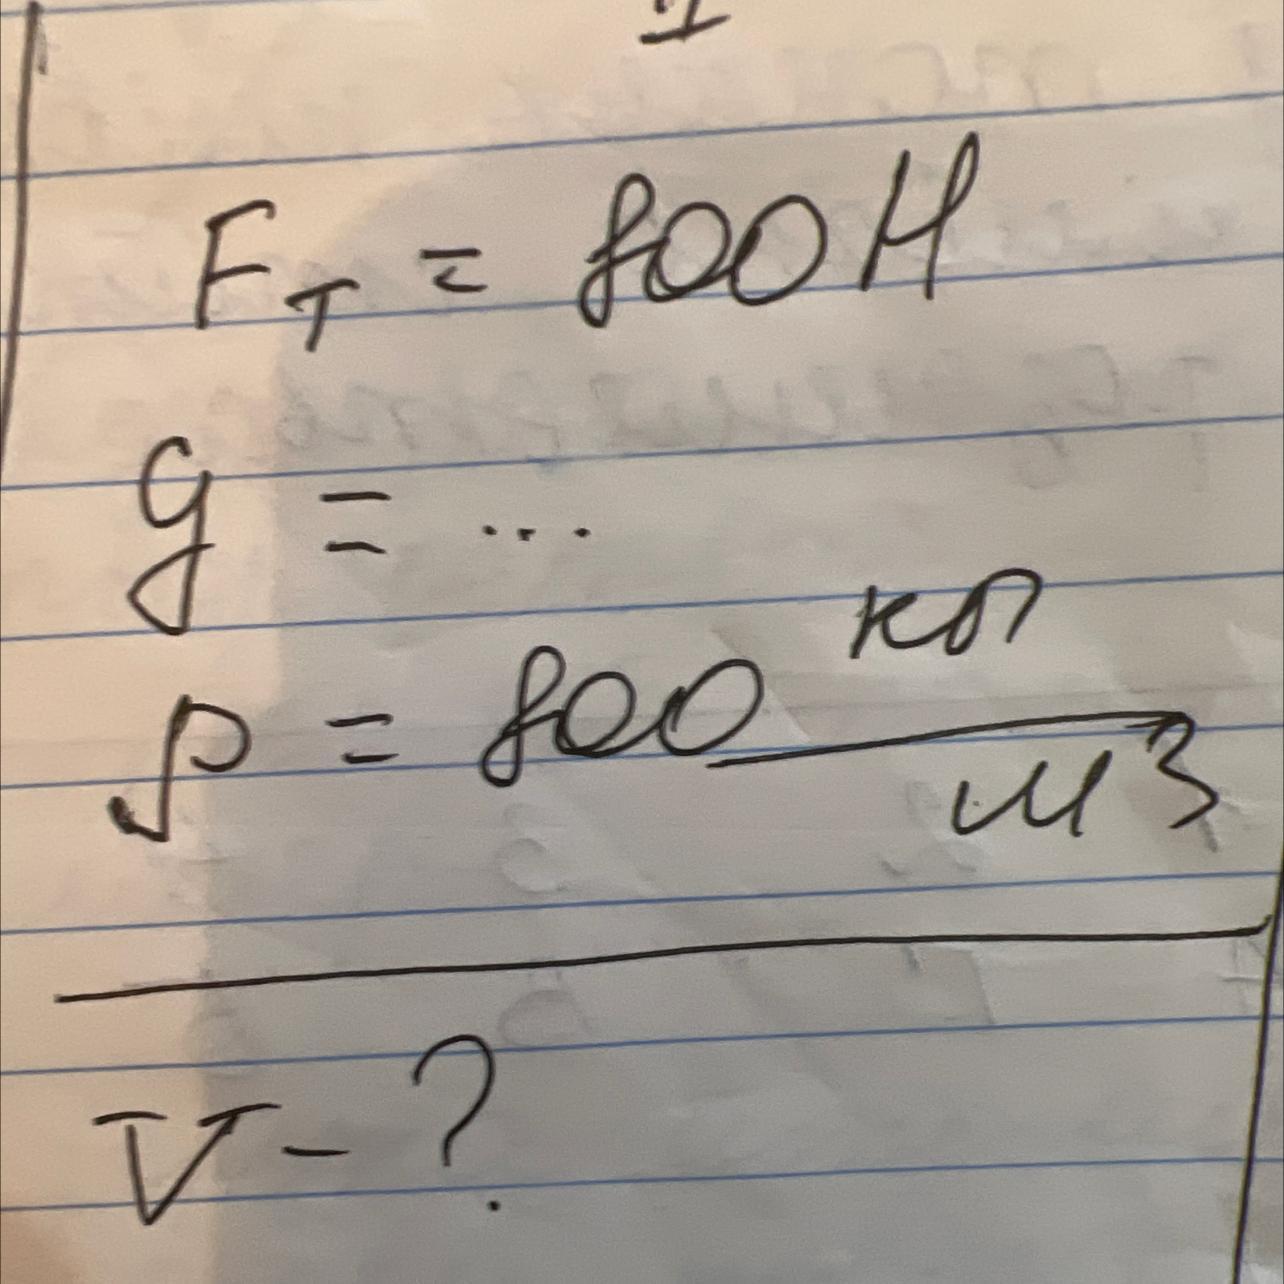 Fт = 800 Н
g = ...
ρ = 800 кг/м3
V - ?